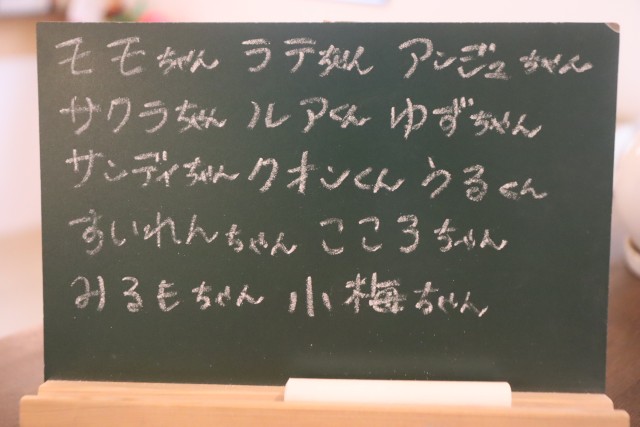 モモちゃん ラテちゃん アンジュちゃん
サクラちゃん ルアくん ゆずちゃん
サンディちゃん クオンくん うるくん
すいれんちゃん こころちゃん
みるもちゃん 小梅ちゃん